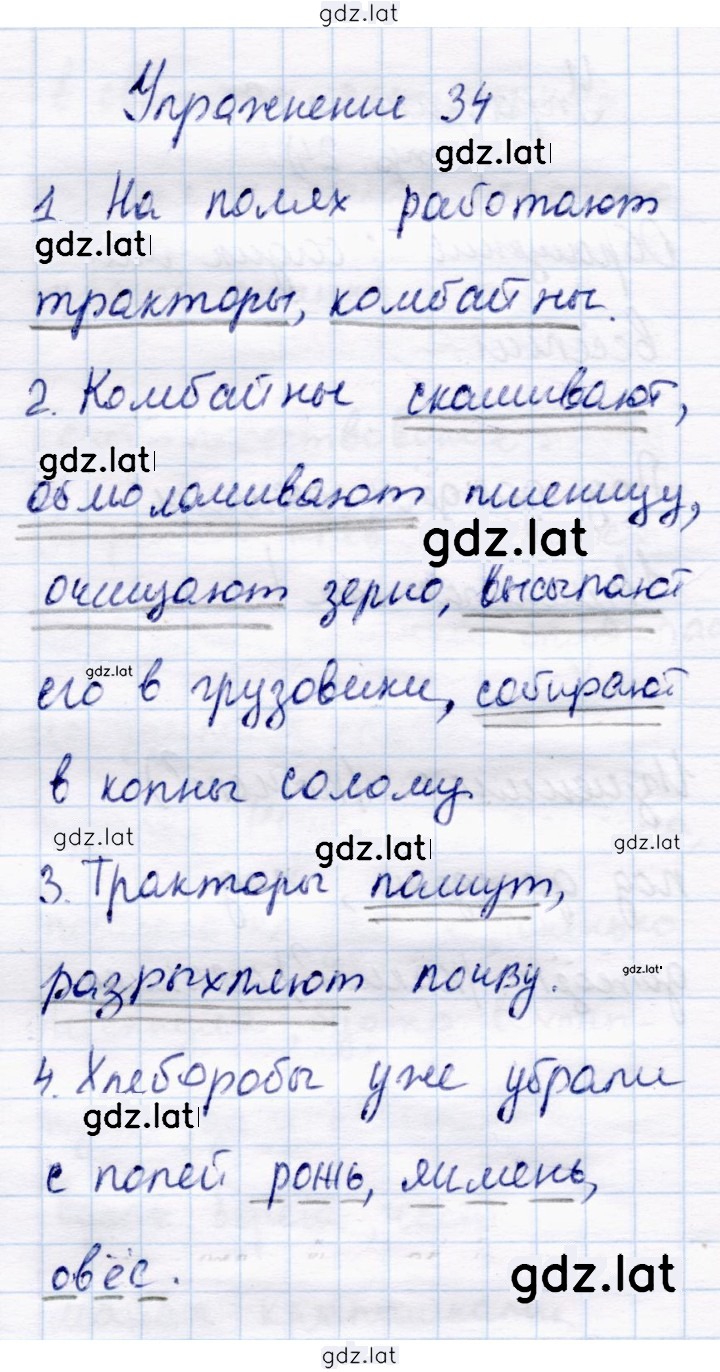 gdz.lat
Упражнение 34
gdz.lat
1 На полях работают
gdz.lat
тракторы, комбайны.
2. Комбайны скашивают,
gdz.lat
обмолачивают пшеницу,
gdz.lat
очищают зерно, высыпают
gdz.lat
его в грузовики, собирают
в копны солому
gdz.lat gdz.lat gdz.lat
3. Тракторы пашут,
разрыхляют почву. gdz.lat
4. Хлеборобы уже убрали
gdz.lat
с полей рожь, ячмень,
овёс. gdz.lat
gdz.lat